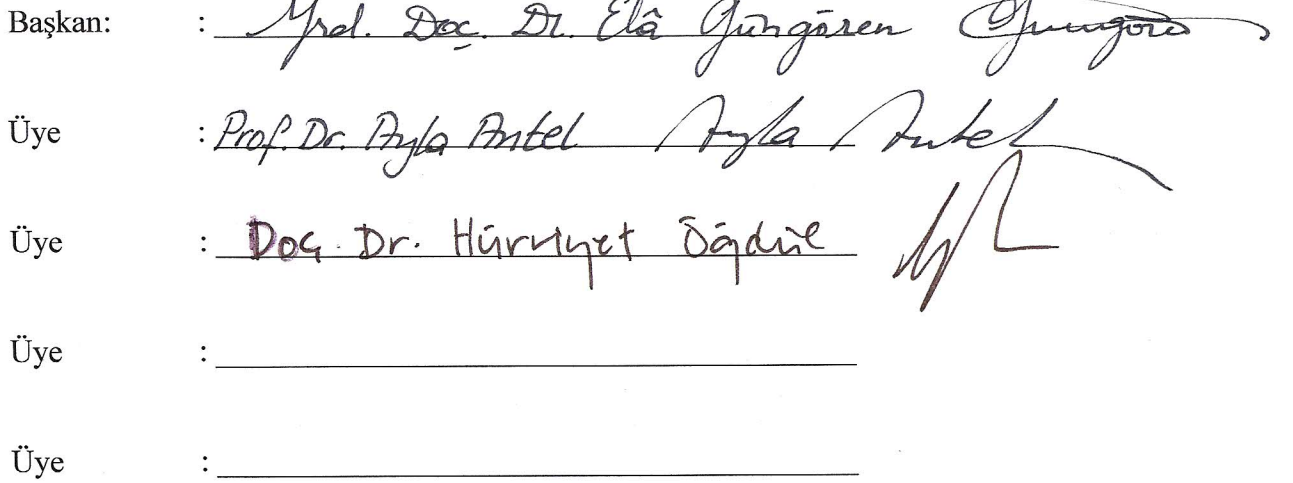 Başkan: : Yrd. Doç. Dr. Elâ Güngören Güngören
Üye : Prof. Dr. Ayla Antel Ayla Antel
Üye : Doç. Dr. Hürriyet Öğdül
Üye :
Üye :